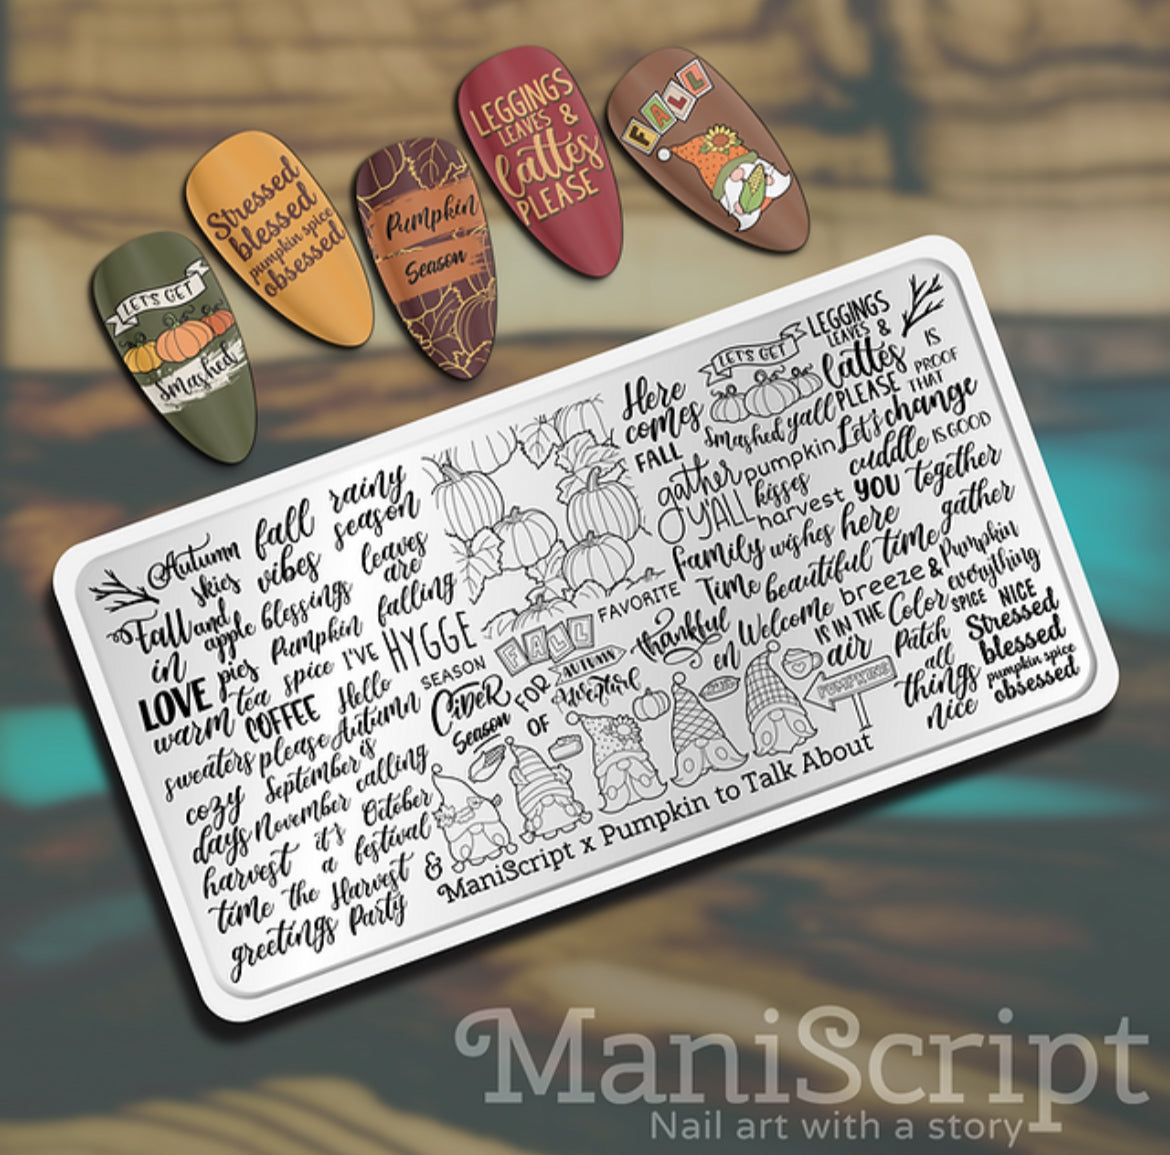 LET'S GET
Smashed
Stressed
blessed
pumpkin spice
obsessed
Pumpkin
Season
LEGGINGS
LEAVES &
lattes
PLEASE
FALL
Autumn
skies
fall
vibes
rainy
season
Fall and
in
apple blessings
leaves
are
falling
LOVE pies
Pumpkin
spice
I'VE
HYGGE
SEASON
warm tea
COFFEE
Hello
Autumn
sweaters please
September is
calling
cozy
days November
October
harvest
it's
a
festival
time the
Harvest
&
greetings Party
FALL
FAVORITE
CiDER
Season
FOR
AUTUMN
OF
adventure
thankful
en
PUMPKINS
Here
comes
FALL
LET'S GET
Smashed
yall
LEGGINGS
LEAVES &
lattes
PLEASE
IS
PROOF
THAT
change
IS GOOD
Let's
cuddle
gather
pumpkin
kisses
Y'ALL
harvest
YOU
together
Family
wishes
here
gather
Time beautiful time
Pumpkin
Welcome
breeze &
everything
IS IN THE
Color
SPICE
NICE
air
Patch
all
things
nice
Stressed
blessed
pumpkin spice
obsessed
ManiScript x Pumpkin to Talk About
ManiScript
Nail art with a story